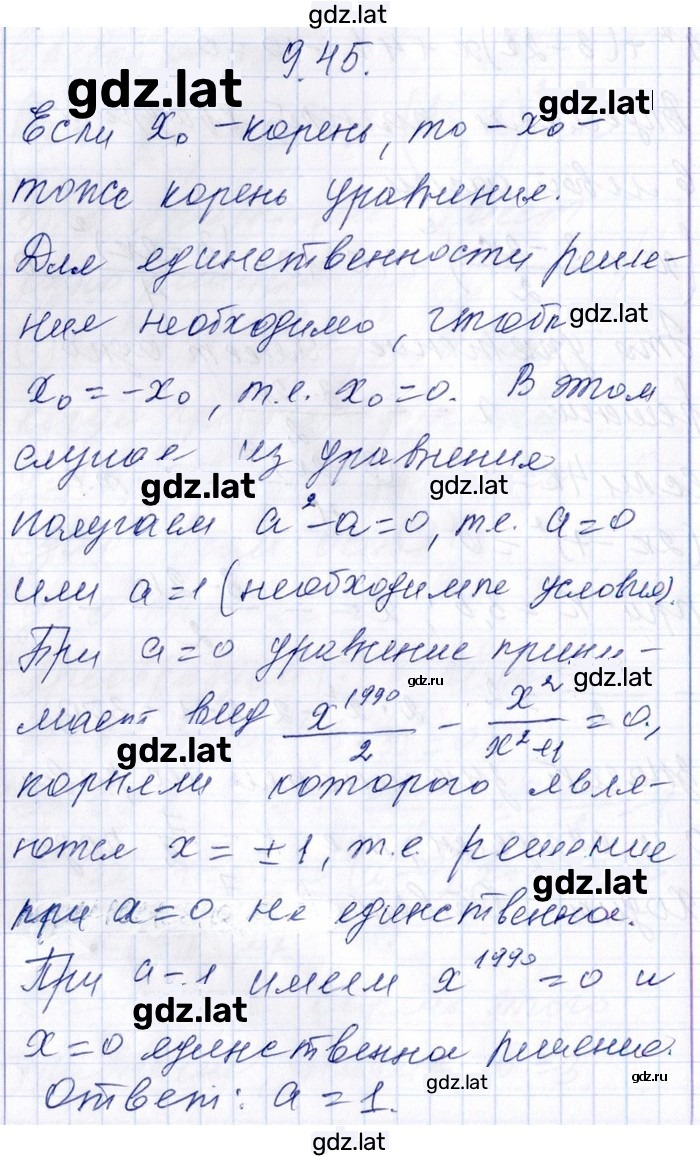 gdz.lat
9.45.
gdz.lat
gdz.lat
Если x₀ – корень, то – x₀ –
тоже корень уравнения.
Для единственности реше-
ния необходимо, чтобы
gdz.lat
x₀ = -x₀, т.е. x₀ = 0. В этом
случае из уравнения
gdz.lat
gdz.lat
получаем a² - a = 0, т.е. a = 0
или a = 1 (необходимые условия).
При a = 0 уравнение прини-
gdz.ru
gdz.lat
мает вид x¹⁹⁹⁰/2 - x²/(x²+1) = 0,
gdz.lat
корнями которого явля-
ются x = ±1, т.е. решение
gdz.lat
при a = 0 не единственное.
При a = 1 имеем x¹⁹⁹⁰ = 0 и
gdz.lat
x = 0 единственное решение.
gdz.lat
gdz.ru
Ответ: a = 1.
gdz.lat